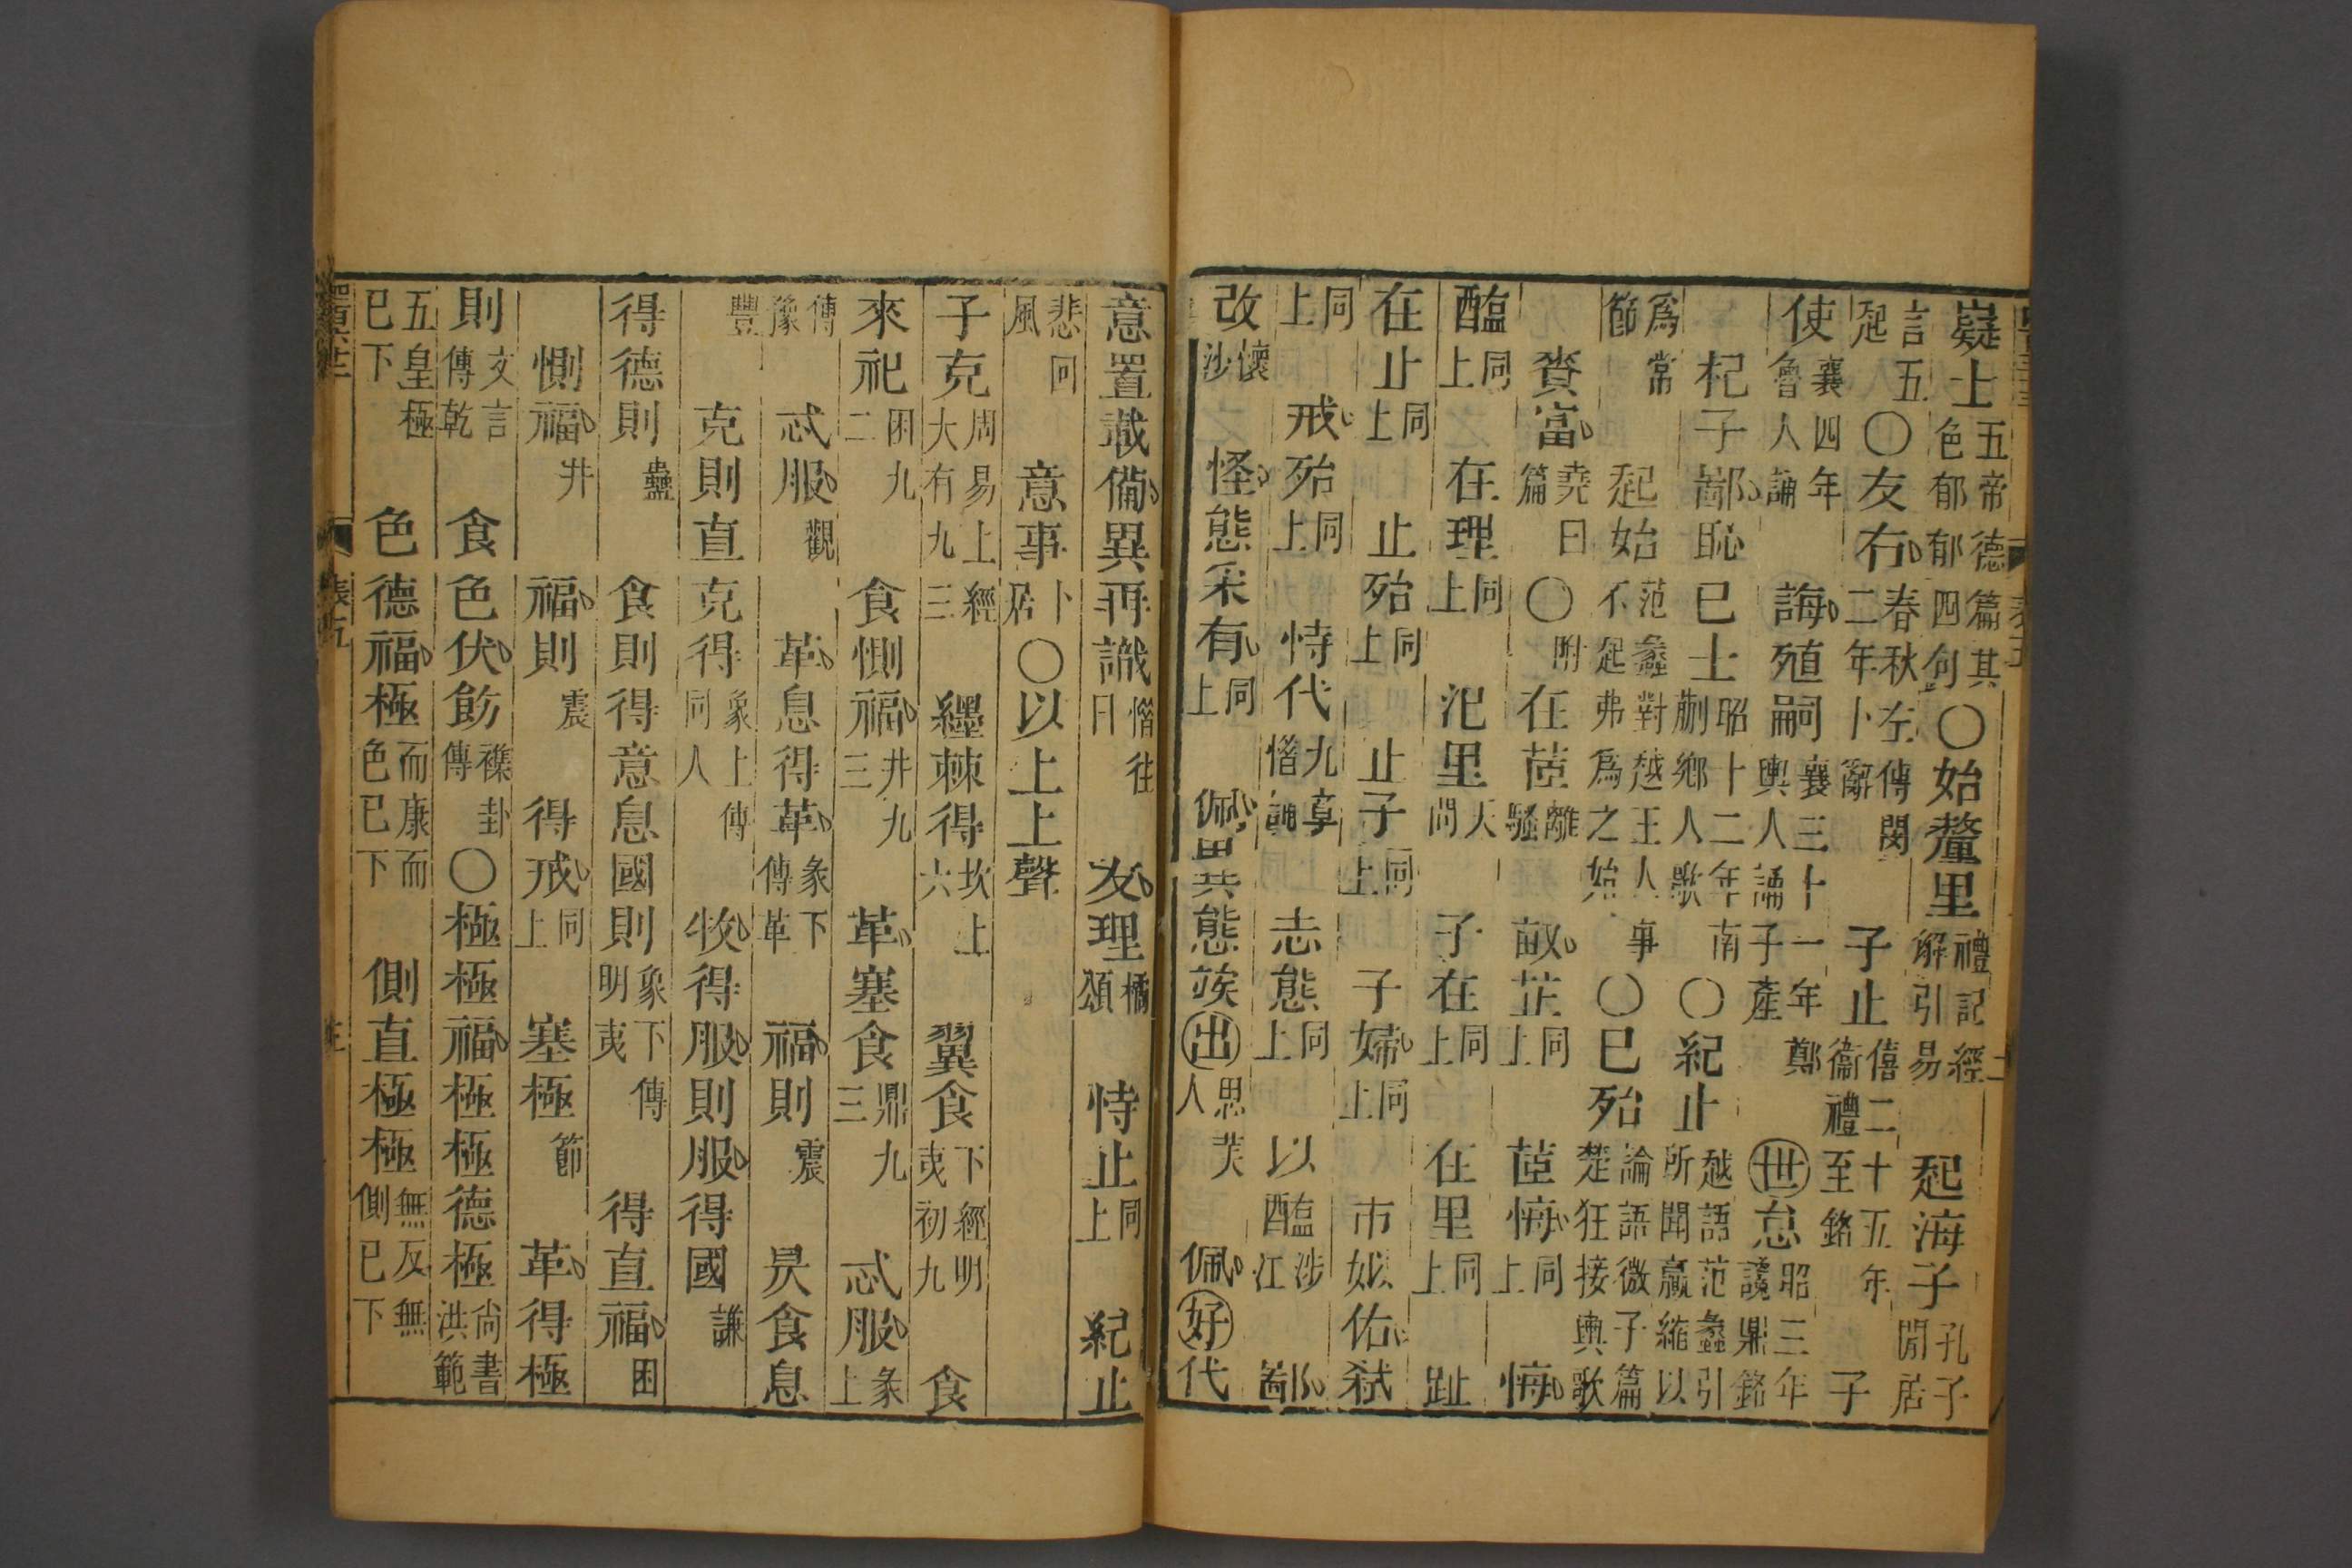 嶷士五帝德篇其色郁郁四句〇始釐里禮記經解引易起海子孔子閒居
言五起〇友右春秋左傳閔二年卜辭子止僖二十五年衞禮至銘子
使襄四年魯人誦誨殖嗣襄三十一年鄭輿人誦子產世怠昭三年讒鼎銘
杞子鄙恥已士昭十二年南蒯鄉人歌〇紀止越語范蠡引所聞贏縮以
爲常節起始范蠡對越王人事不起弗爲之始〇已殆論語微子篇楚狂接輿歌
賚富堯曰篇〇附在茝離騷畝芷同上茝悔同上悔
醢同上在理同上汜里天問子在同上在里同上趾
在止同上止殆同上止子同上子婦同上市姒佑弒
同上戒殆同上恃代九章惜誦志態同上以醢涉江鄙
改懷沙怪態采有同上佩異態竢出思美人佩好代
意置載備異再識惜往日友理橘頌恃止同上紀止
悲回風意事卜居〇以上上聲
子克周易上經大有九三纆棘得坎上六翼食下經明夷初九食
來祀困九二食惻福井九三革塞食鼎九三忒服彖上
傳豫豐忒服觀革息得革彖下傳革福則震昃食息
克則直克得象上傳同人牧得服則服得國謙
得德則蠱食則得意息國則象下傳明夷得直福困
惻福井福則震得戒同上塞極節革得極
則文言傳乾食色伏飭襍卦傳〇極極福極極德極尚書洪範
五皇極已下色德福極而康而色已下側直極極無反無側已下